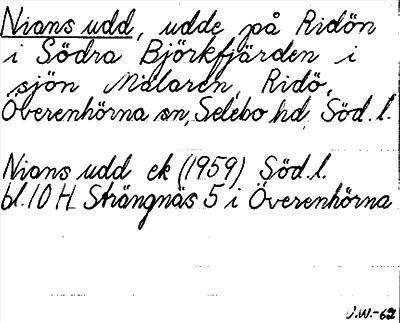 Nians udd, udde på Ridön
i Södra Björkfjärden i
sjön Mälaren, Ridö,
Överenhörna sn, Selebo hd, Söd. l.
Nians udd ek (1959) Söd. l.
bl. 10 H Strängnäs 5 i Överenhörna
J.W.-62